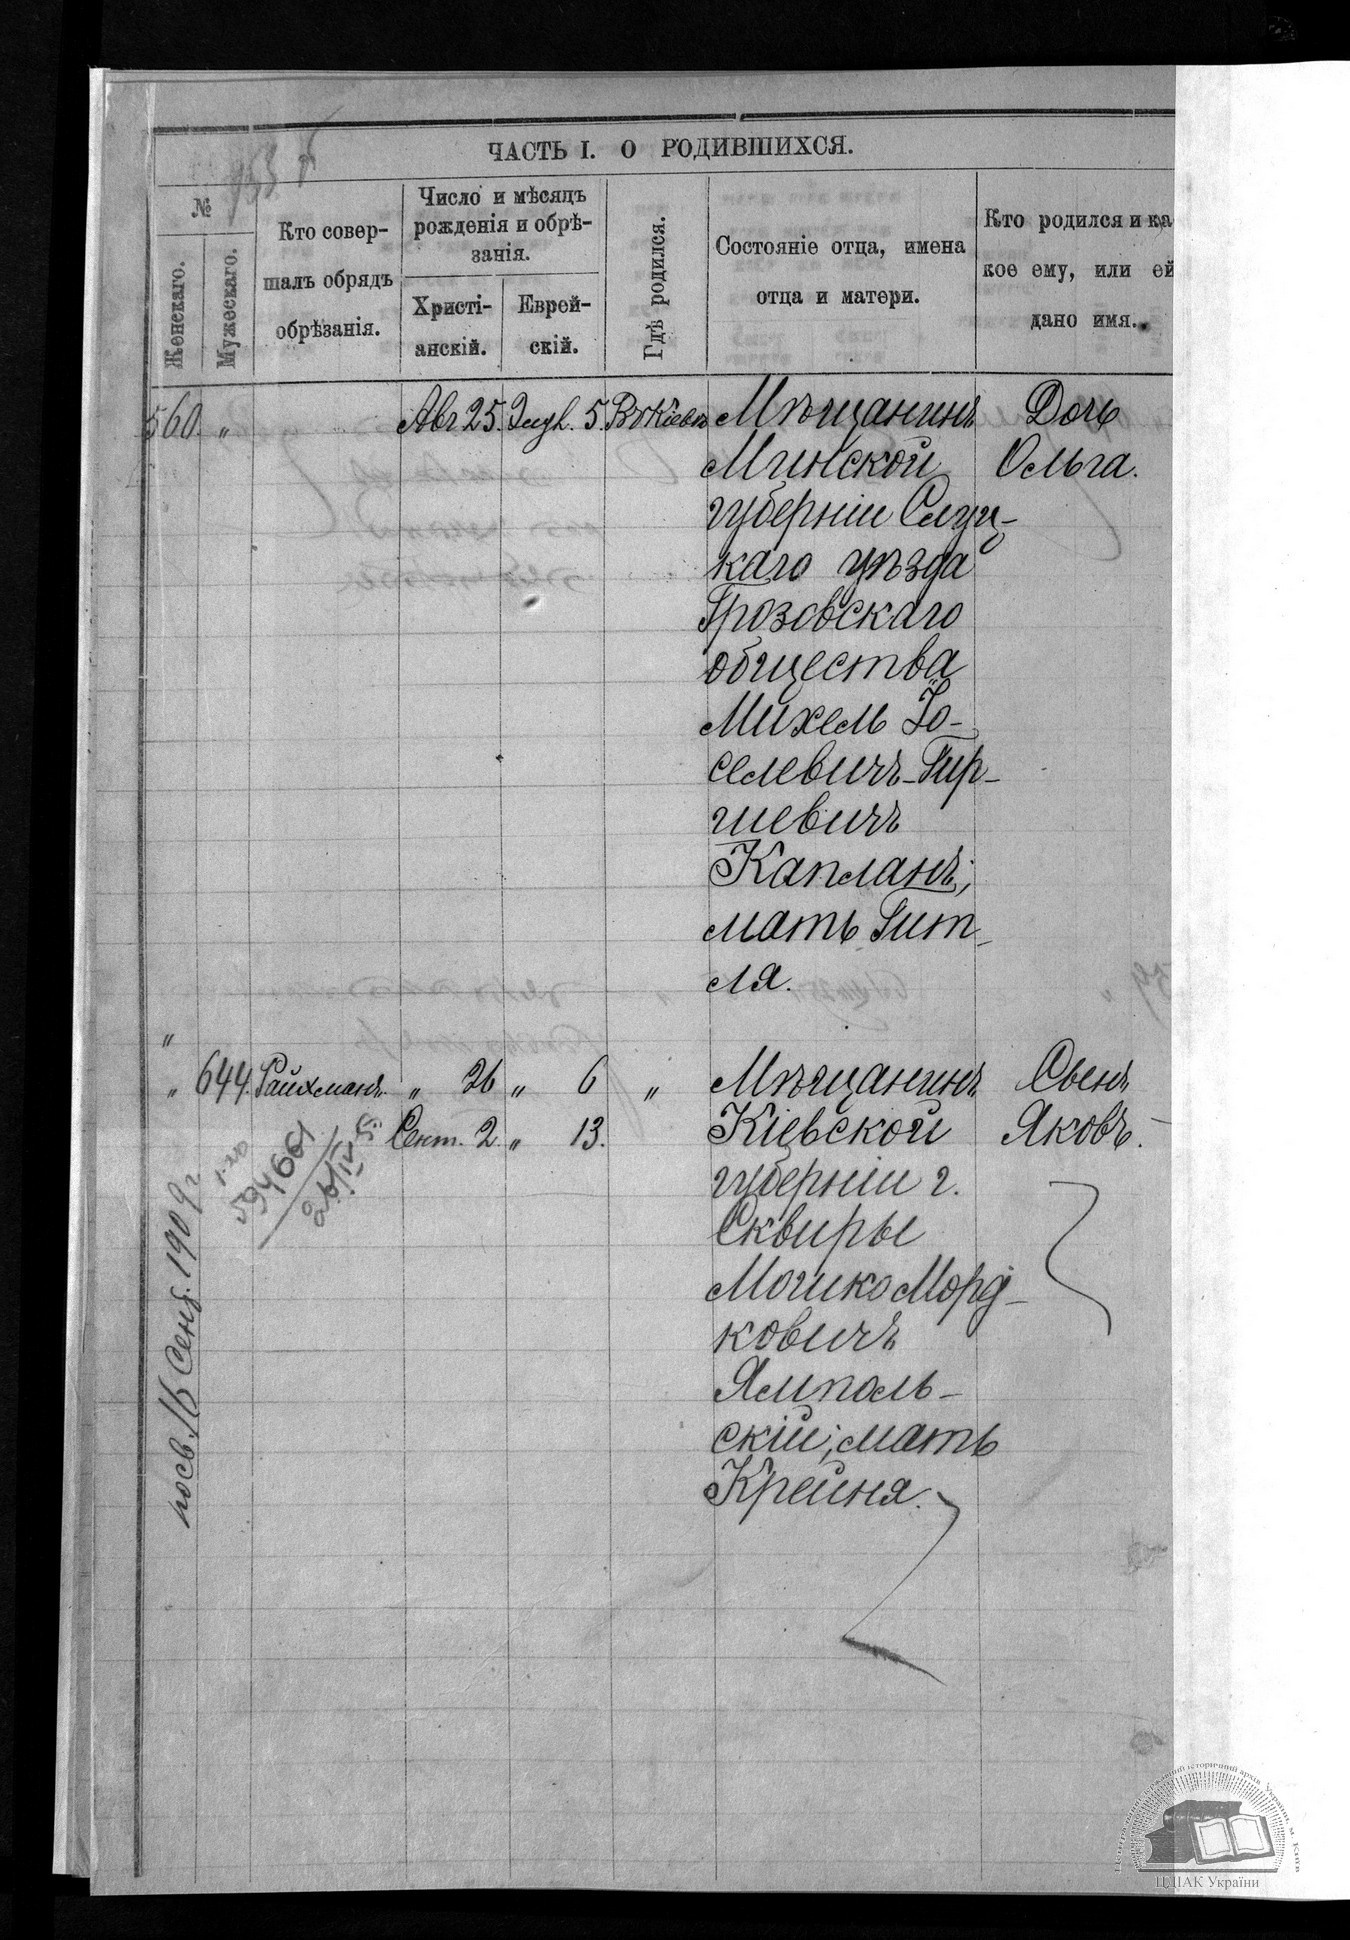 ЧАСТЬ I. О РОДИВШИХСЯ.
№
Женскаго.
Мужескаго.
Кто совер-
шалъ обрядъ
обрѣзанія.
Число и мѣсяцъ
рожденія и обрѣ-
занія.
Христі-
анскій.
Еврей-
скій.
Гдѣ родился.
Состояніе отца, имена
отца и матери.
Кто родился и ка
кое ему, или ей
дано имя.
560. " Авг 25. Элул. 5. Въ Кіевѣ Мѣщанинъ Дочь
Минской Ольга.
губерніи Слуц-
каго уѣзда
Грозовскаго
общества
Михель Іо-
селевичъ-Гир-
шевичъ
Капланъ;
мать Гит-
ля.
"
" 644. Райхманъ. " 26 " 6 " Мѣщанинъ Сынъ
Сент. 2 " 13. Кіевской Яковъ.
губерніи г.
Сквиры
Мошко Морд-
ковичъ
Ямполь-
скій; мать
Крейня.
594661
16 Сент. 1909 г
ЦДІАК України